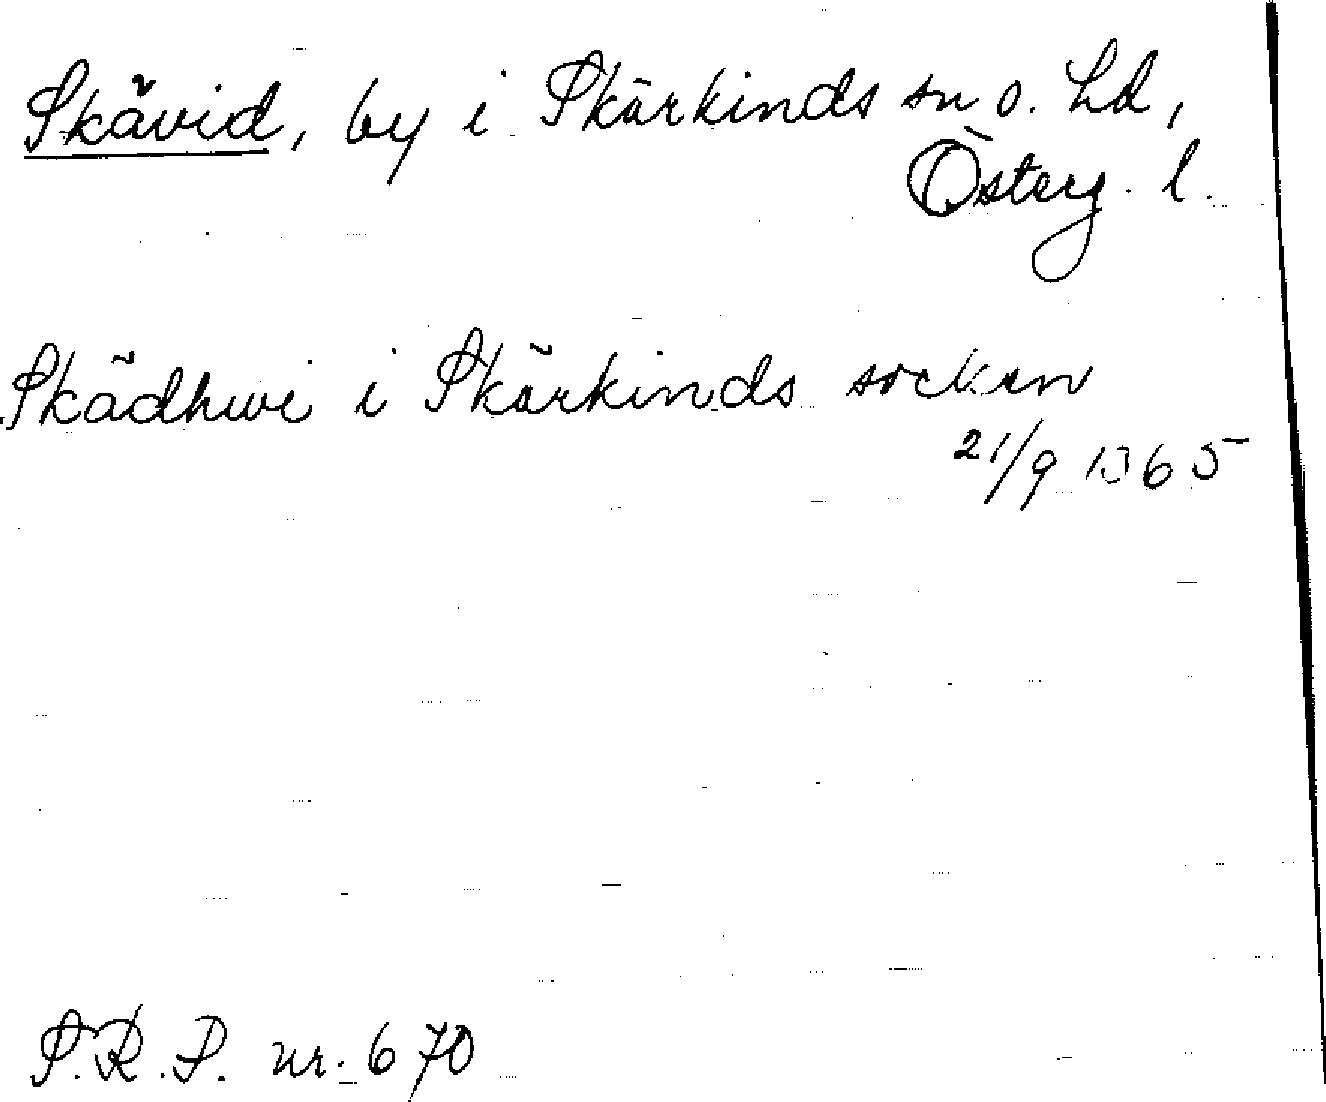 Skävid, by i Skärkinds sn o. hd,
Österg. l.
Skädhwi i Skärkinds sockan
21/9 1365
S.R.P. nr. 670